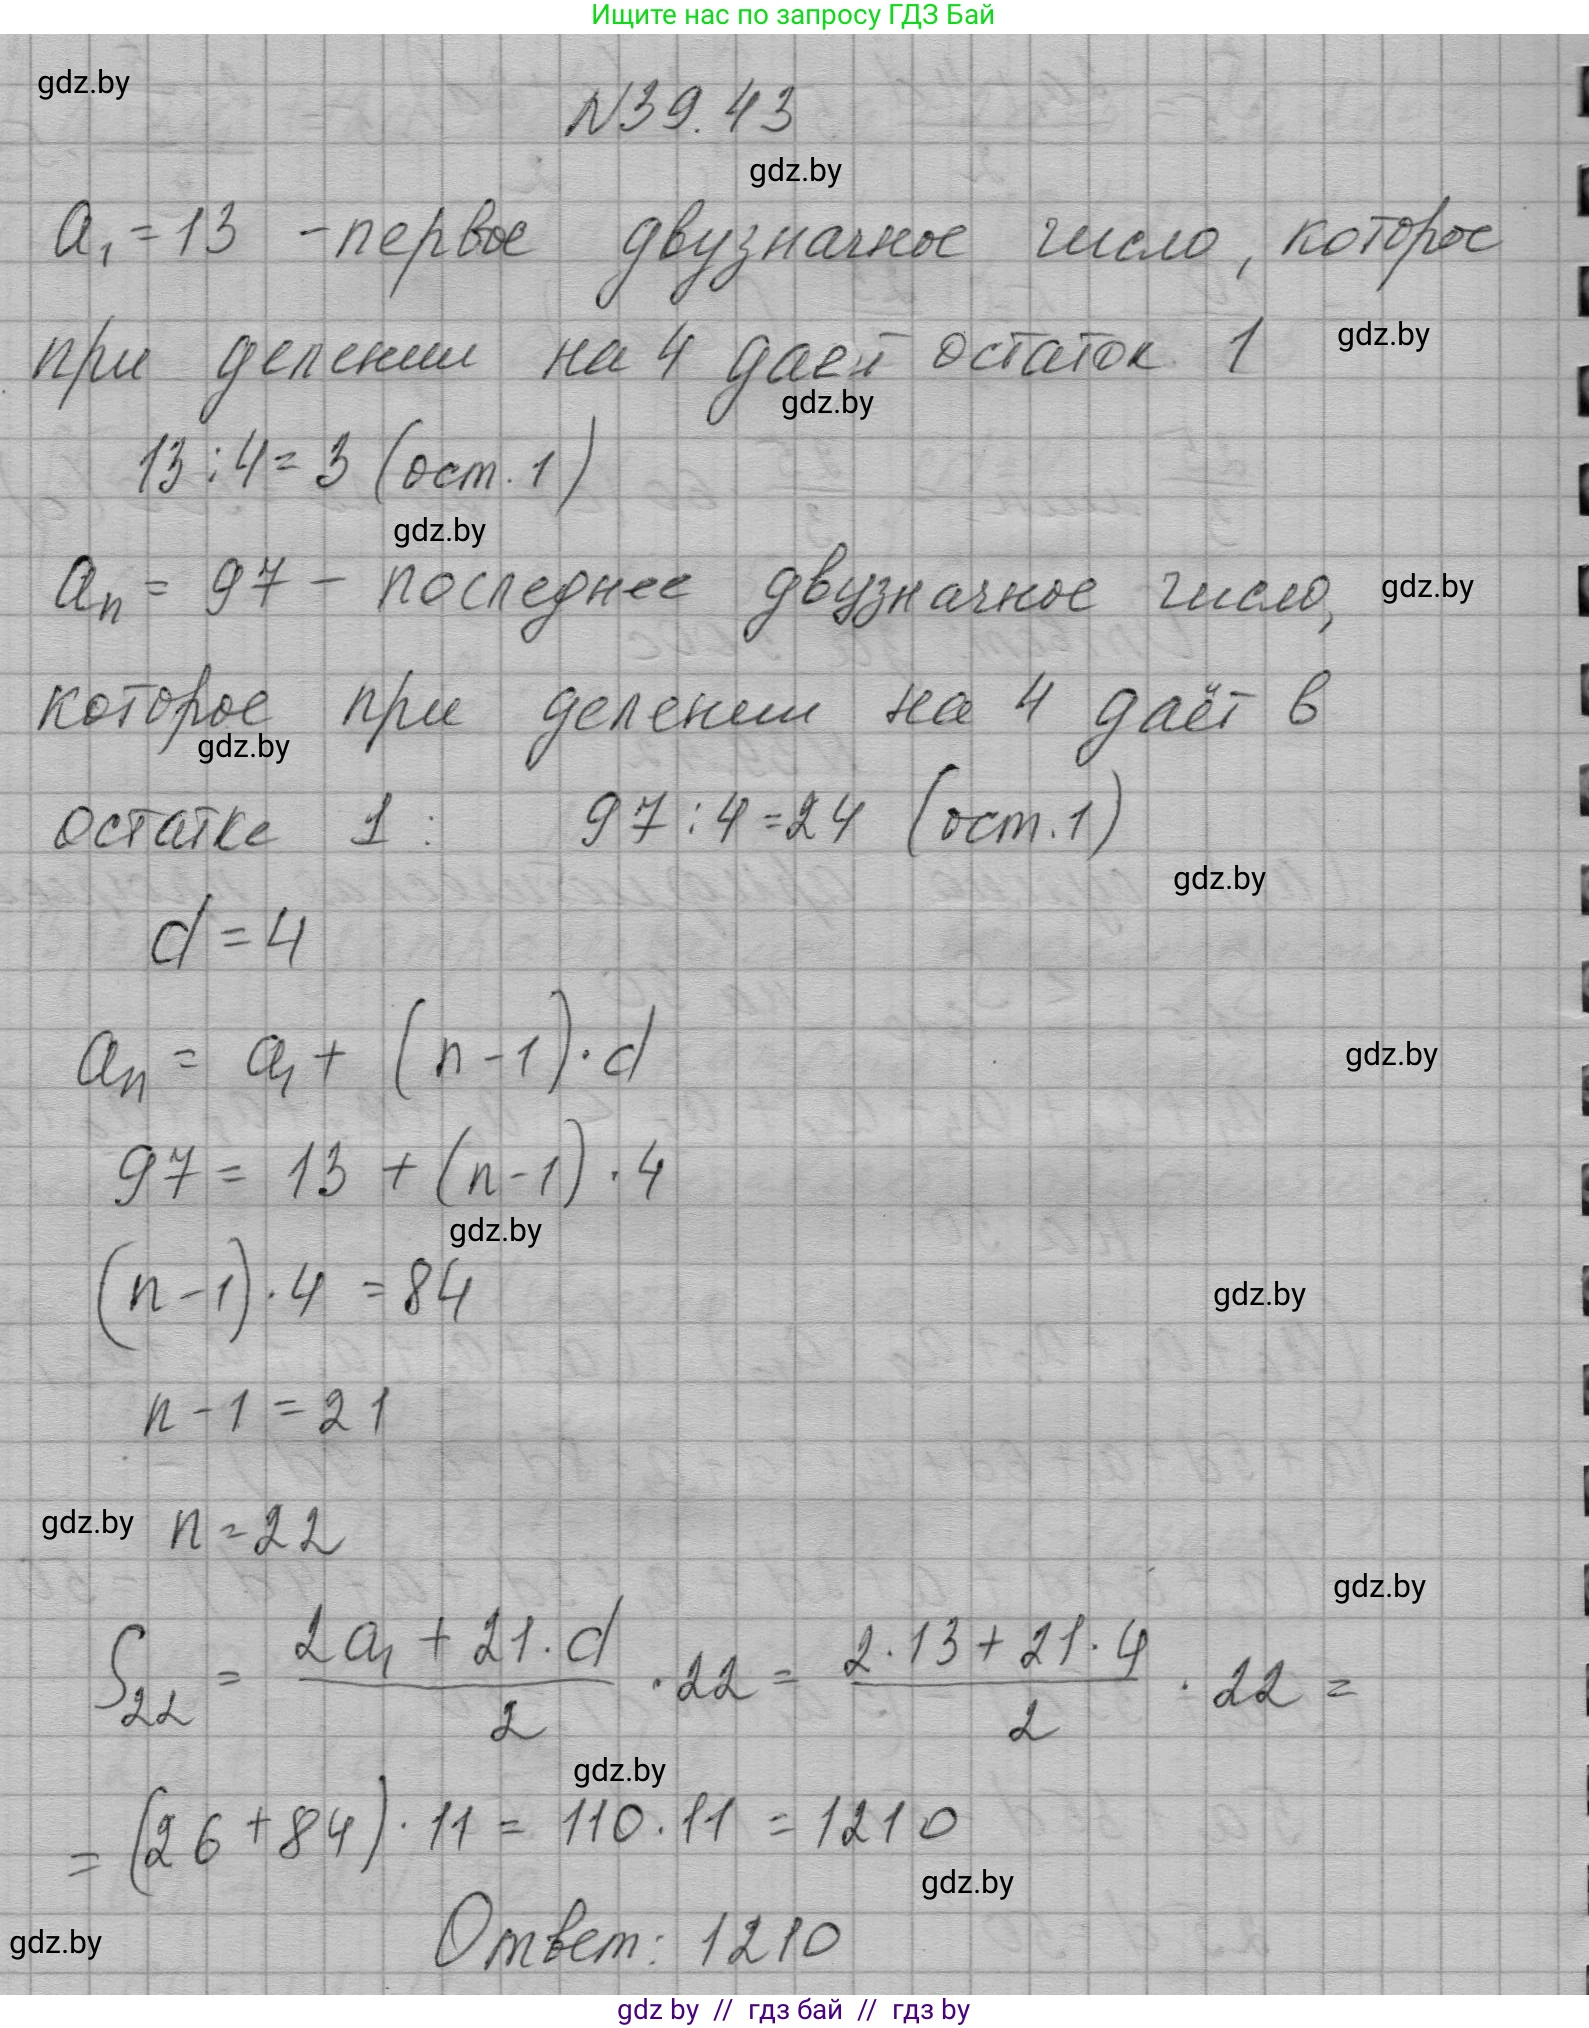 Ищите нас по запросу ГДЗ Бай
gdz.by
N39.43
gdz.by
a₁ = 13 - первое двузначное число, которое
при делении на 4 дает остаток 1
gdz.by
gdz.by
13 : 4 = 3 (ост. 1)
gdz.by
aₙ = 97 - последнее двузначное число,
gdz.by
которое при делении на 4 даёт в
gdz.by
остатке 1 : 97 : 4 = 24 (ост. 1)
gdz.by
d = 4
aₙ = a₁ + (n - 1) · d
gdz.by
97 = 13 + (n - 1) · 4
gdz.by
(n - 1) · 4 = 84
gdz.by
n - 1 = 21
gdz.by
n = 22
gdz.by
S₂₂ = (2a₁ + 21 · d)/2 · 22 = (2 · 13 + 21 · 4)/2 · 22 =
gdz.by
= (26 + 84) · 11 = 110 · 11 = 1210
gdz.by
Ответ: 1210
gdz.by
gdz by // гдз бай // гдз by